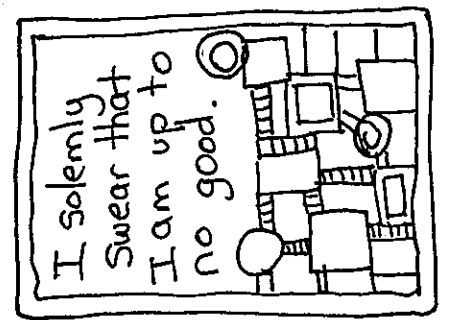 I solemly
Swear that
I am up to
no good.